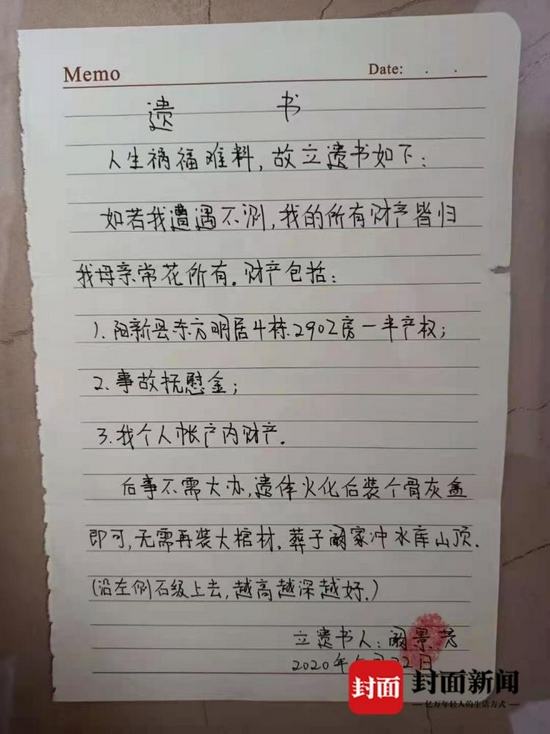 Memo
Date: . .
遗 书
人生祸福难料,故立遗书如下:
如若我遭遇不测,我的所有财产皆归
我母亲常花所有。财产包括:
1.阳新县东方明居4栋2902房一半产权;
2.事故抚慰金;
3.我个人帐户内财产.
后事不需大办,遗体火化后装个骨灰盒
即可,无需再装大棺材.葬于阚家冲水库山顶.
(沿左侧石级上去,越高越深越好.)
立遗书人:阚景芳
2020年 月22日
封面 封面新闻
亿万年轻人的生活方式